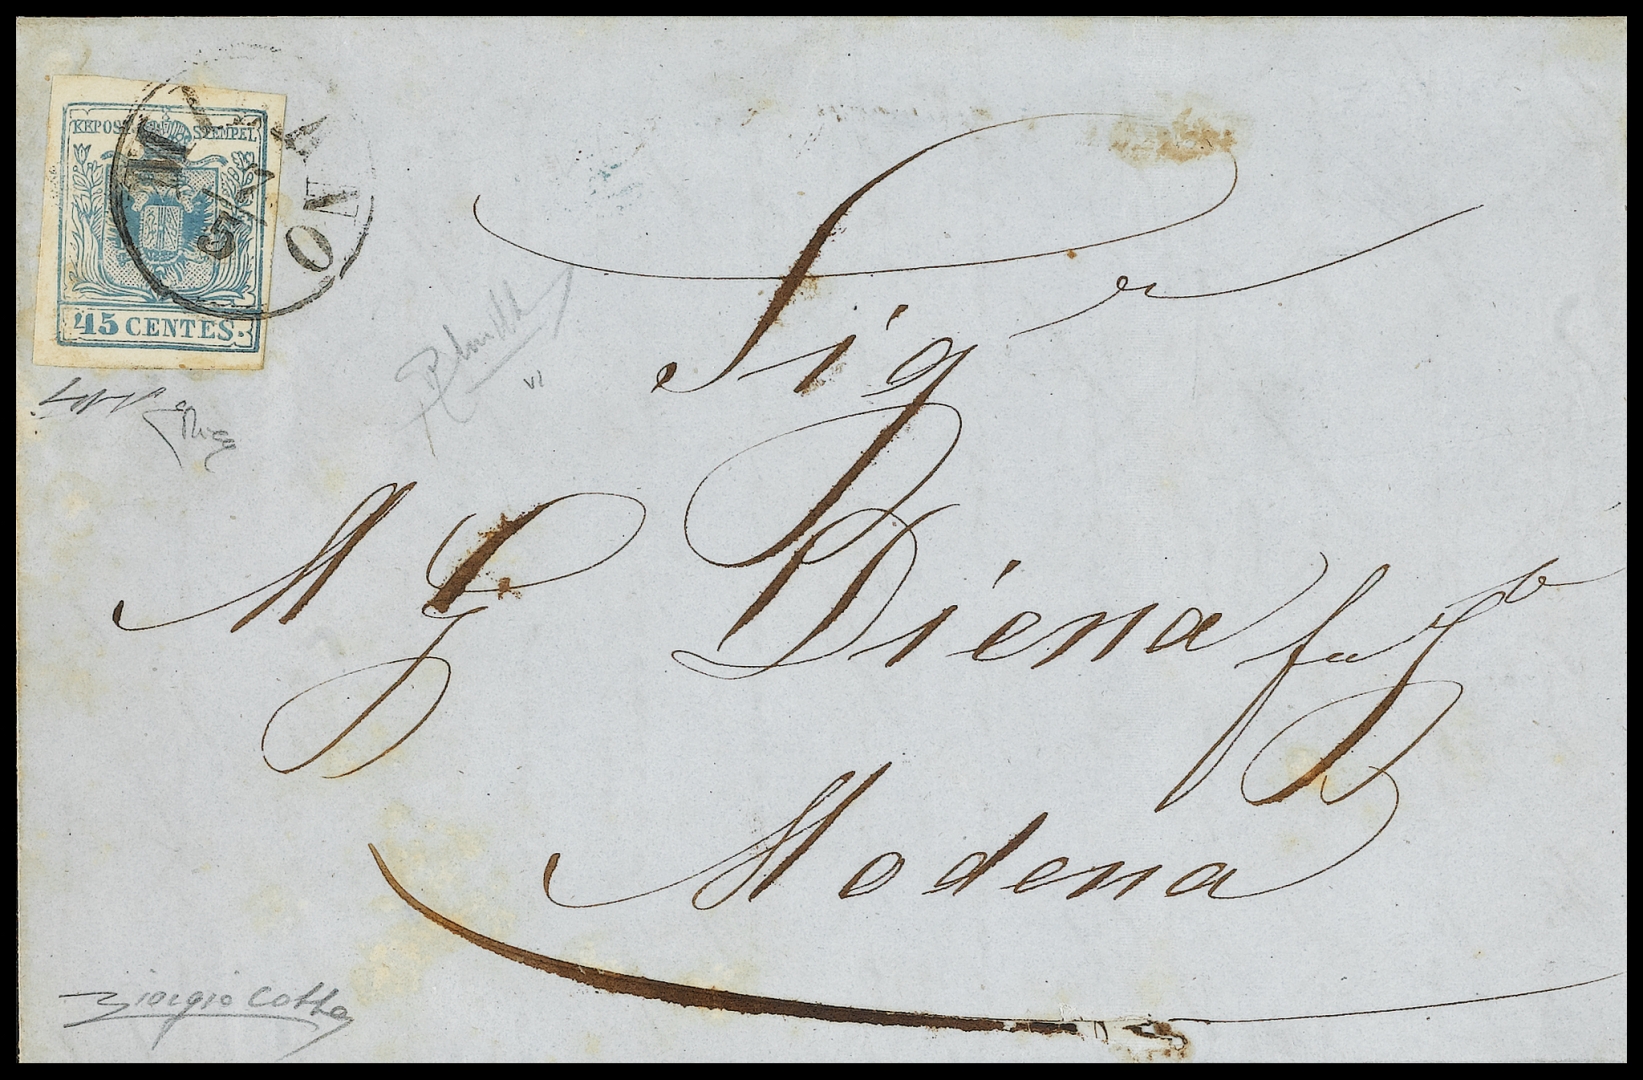 KKPOST-STEMPEL
45 CENTES.
MILANO
5/5
Sig.r
M G Diena fu J.b
Modena
Giorgio Colla